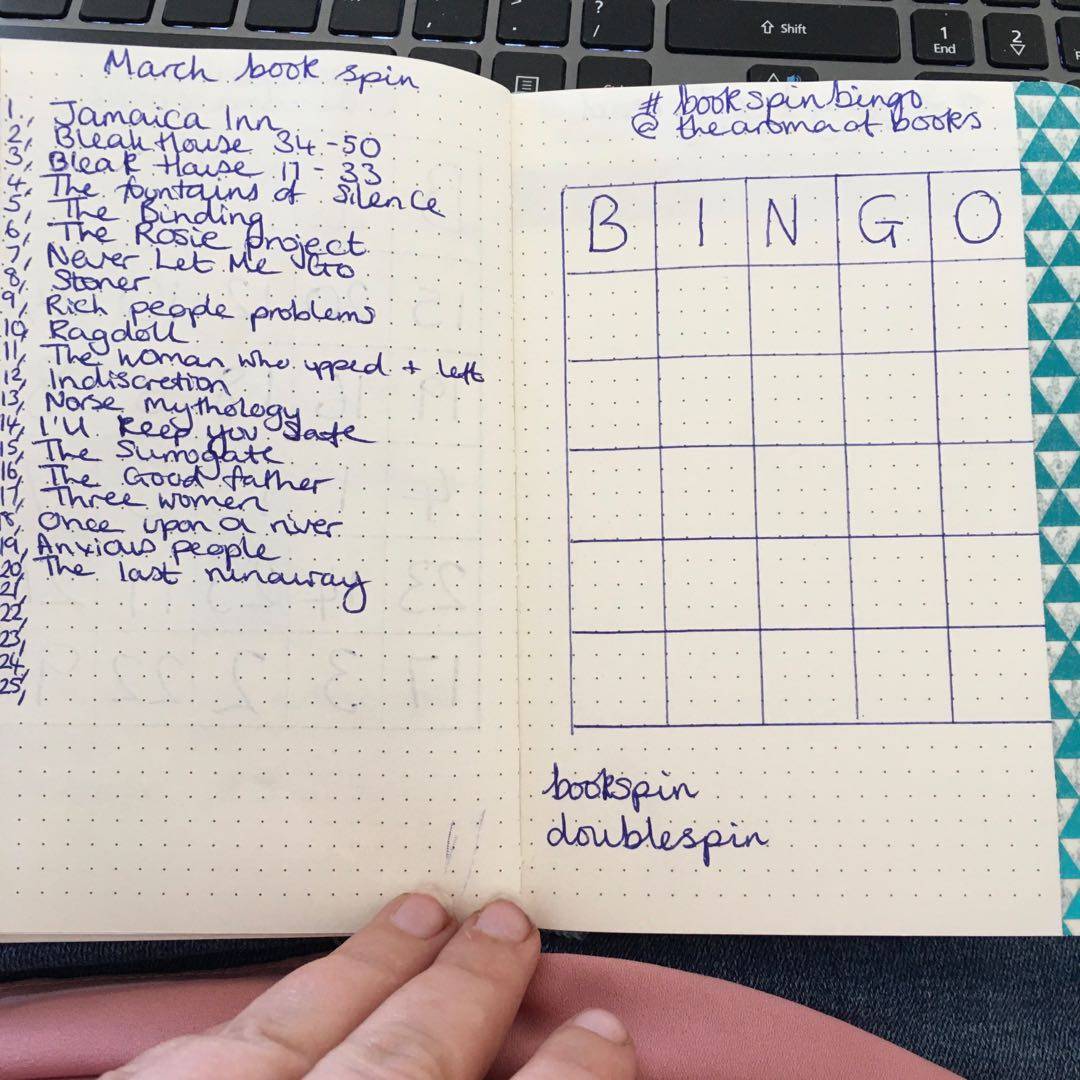 ? /
⇧ Shift
1 End
2 ▽
March book spin
1., Jamaica Inn
2, Bleak House 34-50
3, Bleak House 17-33
4, The fountains of Silence
5, The Binding
6, The Rosie project
7, Never Let Me Go
8, Stoner
9, Rich people problems
10, Ragdoll
11, The woman who upped + left
12, Indiscretion
13, Norse Mythology
14, I'll keep you safe
15, The Surrogate
16, The Good father
17, Three women
18, Once upon a river
19, Anxious people
20, The last runaway
21,
22,
23,
24,
25,
# bookspinbingo
@ thearomaofbooks
B I N G O
bookspin
doublespin